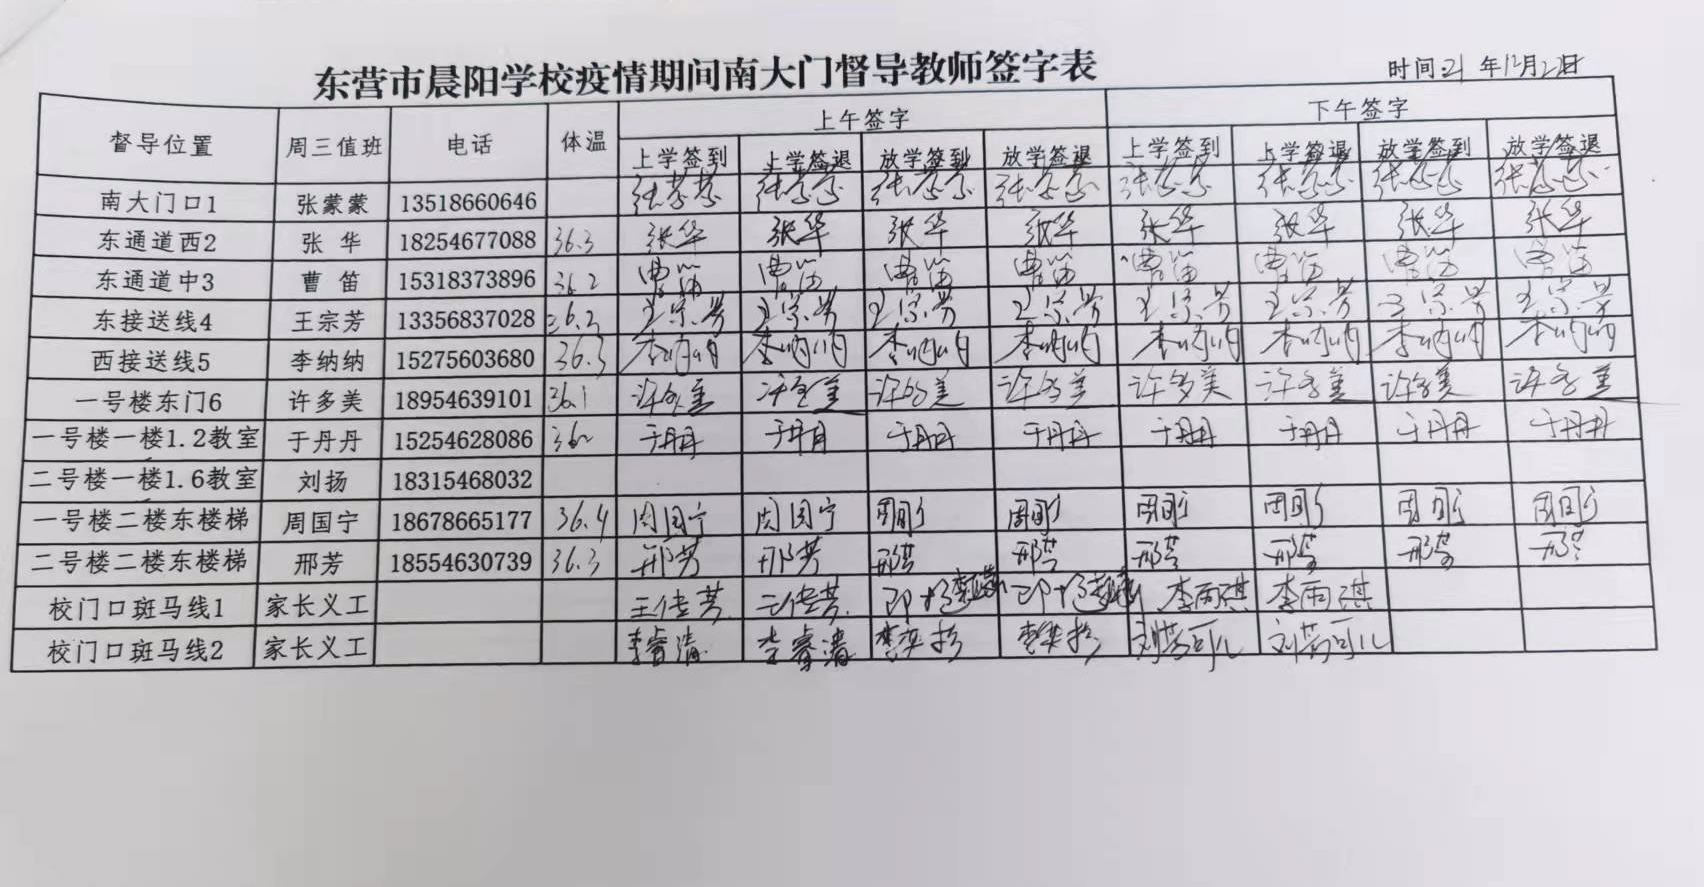 东营市晨阳学校疫情期间南大门督导教师签字表
时间:21 年12月22日
督导位置 周三值班 电话 体温 上午签字 下午签字
上学签到 上学签退 放学签到 放学签退 上学签到 上学签退 放学签到 放学签退
南大门口1 张蒙蒙 13518660646 张蒙蒙 张蒙蒙 张蒙蒙 张蒙蒙 张蒙蒙 张蒙蒙 张蒙蒙 张蒙蒙
东通道西2 张 华 18254677088 36.3 张华 张华 张华 张华 张华 张华 张华 张华
东通道中3 曹 笛 15318373896 36.2 曹笛 曹笛 曹笛 曹笛 曹笛 曹笛 曹笛 曹笛
东接送线4 王宗芳 13356837028 36.2 王宗芳 王宗芳 王宗芳 王宗芳 王宗芳 王宗芳 王宗芳 王宗芳
西接送线5 李纳纳 15275603680 36.3 李纳纳 李纳纳 李纳纳 李纳纳 李纳纳 李纳纳 李纳纳 李纳纳
一号楼东门6 许多美 18954639101 36.1 许多美 许多美 许多美 许多美 许多美 许多美 许多美 许多美
一号楼一楼1.2教室 于丹丹 15254628086 于丹丹 于丹丹 于丹丹 于丹丹 于丹丹 于丹丹 于丹丹 于丹丹
二号楼一楼1.6教室 刘扬 18315468032
一号楼二楼东楼梯 周国宁 18678665177 36.4 周国宁 周国宁 周刚 周刚 周刚 周刚 周刚 周刚
二号楼二楼东楼梯 邢芳 18554630739 36.3 邢芳 邢芳 邢芳 邢芳 邢芳 邢芳 邢芳 邢芳
校门口斑马线1 家长义工 王传芳 王传芳 李雨琪 李雨琪
校门口斑马线2 家长义工 李睿清 李睿清 刘芮可儿 刘芮可儿